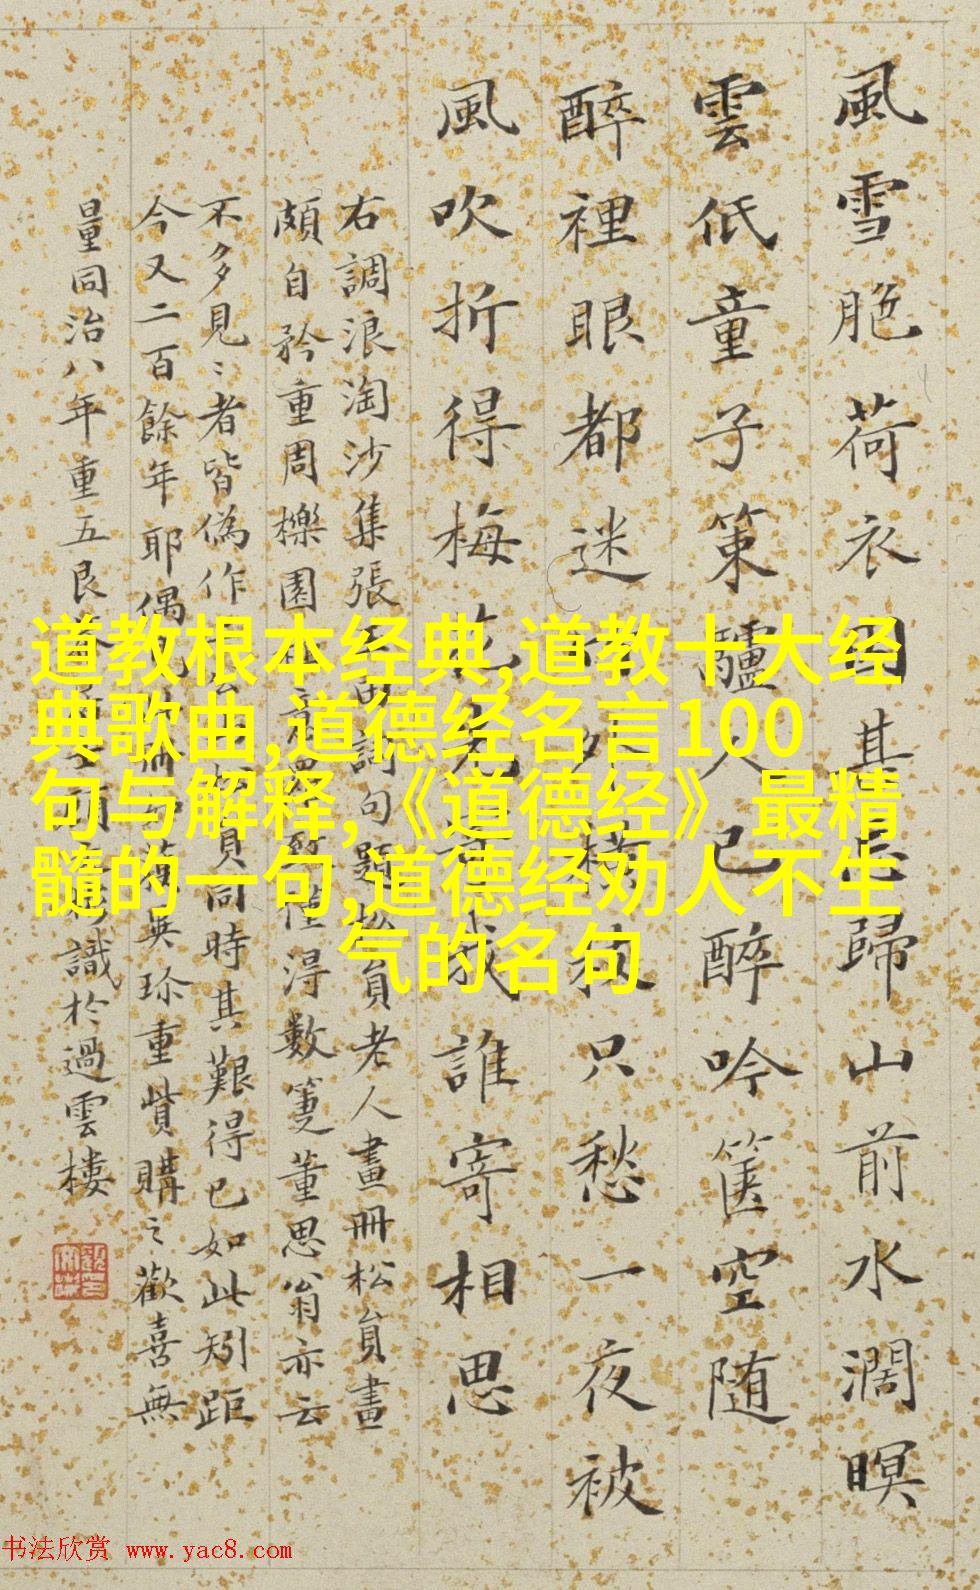 風雪脃荷衣因其忘歸山前水濶暝
雲低童子策驢人已醉吟箧空随
醉裡眼都迷横枝只愁一夜被
風吹折得梅花誰寄相思
右調浪淘沙集張句題松負老人畫冊松負畫
頗自矜重周櫟園得數筆董思翁亦云
不多見見者皆偽作負同時其艱得已如此矧距
今又二百餘年耶偶珍重貲購之歡喜無
量同治八年重五艮識於過雲樓
道教根本经典,道教十大经
典歌曲,道德经名言100
句与解释,《道德经》最精
髓的一句,道德经劝人不生
气的名句
书法欣赏 www.yac8.com